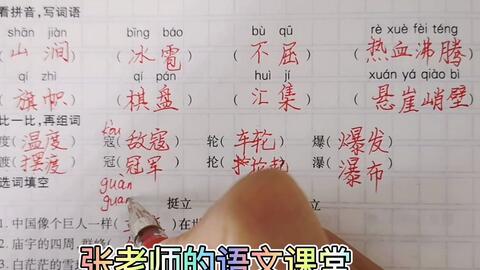 看拼音,写词语
shān jiàn bīng báo bù qū rè xuè fèi téng
山涧 冰雹 不屈 热血沸腾
qí zhì qí pán huì jí xuán yá qiào bì
旗帜 棋盘 汇集 悬崖峭壁
比一比,再组词
度(温度) 寇(敌寇) 轮(车轮) 爆(爆发)
kòu
渡(摆渡) 冠(冠军) 抡( ) 瀑(瀑布)
guàn
guan
选词填空
挺立 立
1.中国像个巨人一样( )在世
2.庙宇的四周,群峰
3.白茫茫的雪
张老师的语文课堂